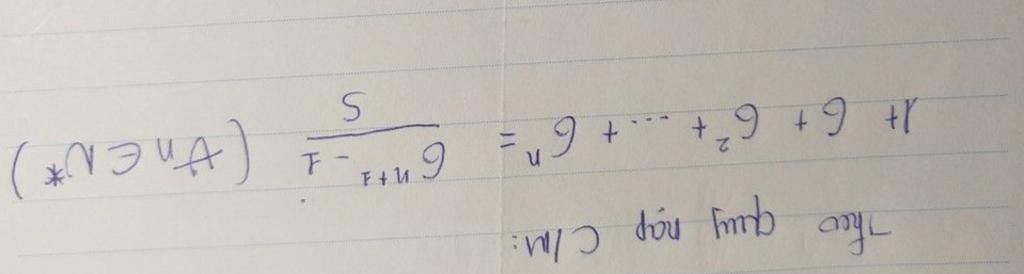 Theo quy nạp C/M:
1 + 6 + 6² + .... + 6ⁿ = (6ⁿ⁺¹ - 1)/5 (∀n ∈ N*)